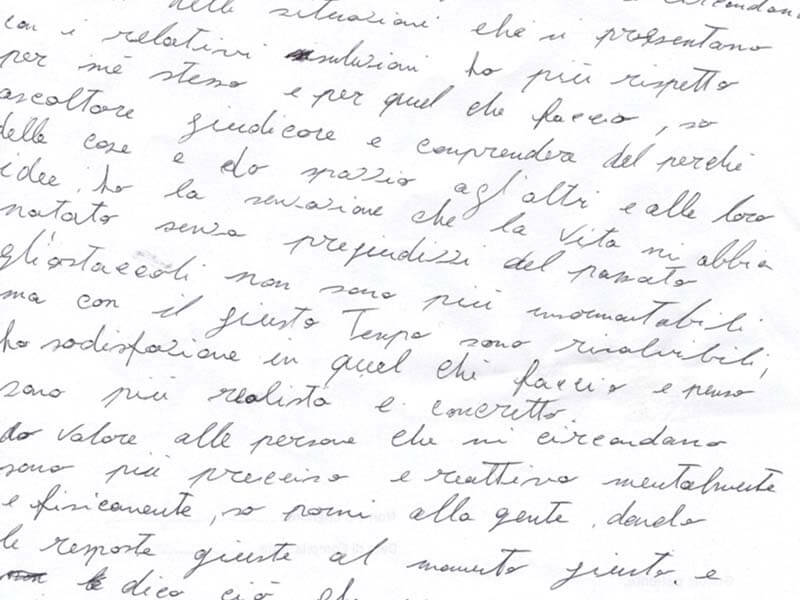 delle situazioni che si presentano
con i relativi risoluzioni ho più rispetto
per mè stesso e per quel che faccio, so
ascoltare giudicare e comprendere del perchè
delle cose e do spazio agl'altri e alle loro
idee. ho la sensazione che la vita mi abbia
natato senza pregiudizzi del passato
gl'ostaccoli non sono più insormontabili
ma con il giusto Tempo sono risolvibili,
ho sodisfazione in quel chè faccio e penso
sono più realista e concretto.
do valore alle persone che mi circondano
sono più preceiso e reattivo mentalmente
e fisicamente, so pormi alla gente. dando
le resposte giuste al momento giusto. e
dico ciò che